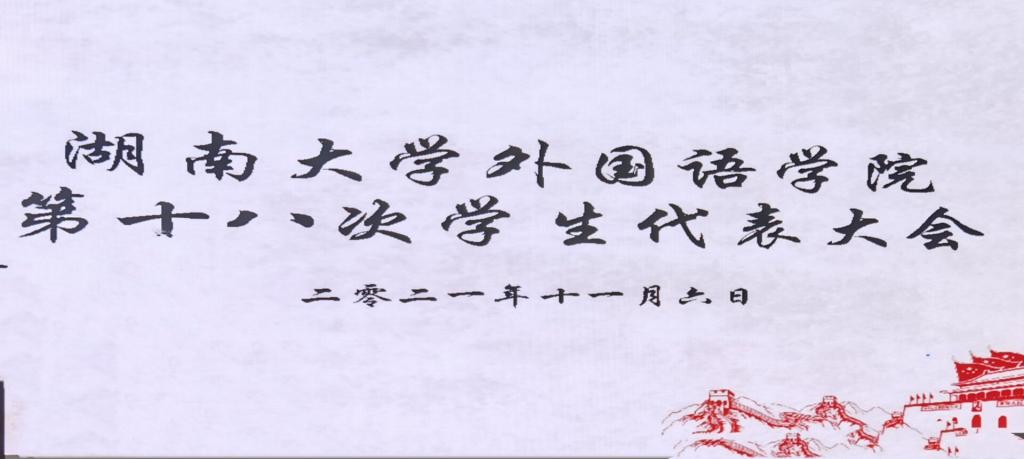 湖南大学外国语学院
第十八次学生代表大会
二零二一年十一月六日